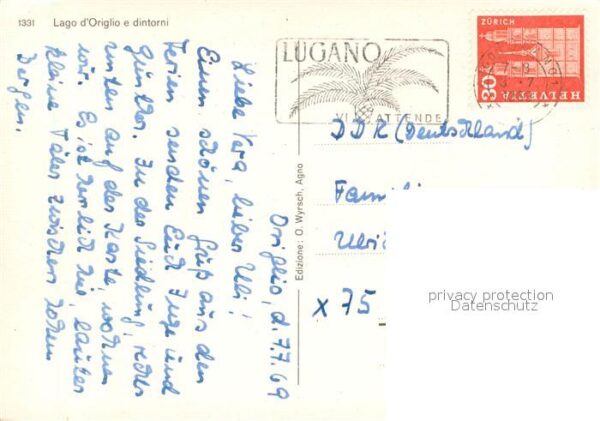 1331 Lago d'Origlio e dintorni
Origlio, d. 7.7.69
Liebe Vera, lieber Uli!
Einen schönen Gruß aus den
Ferien senden Euch Inge und
Günther. In der Siedlung, rechts
unten auf der Karte, wohnen
wir. Es ist herrlich hier, lauter
kleine Täler zwischen hohen
Bergen.
Edizione: O. Wyrsch, Agno
LUGANO
VI ATTENDE
ZÜRICH
30
HELVETIA
DDR (Deutschland)
Famili
Ulri
x 75
privacy protection
Datenschutz